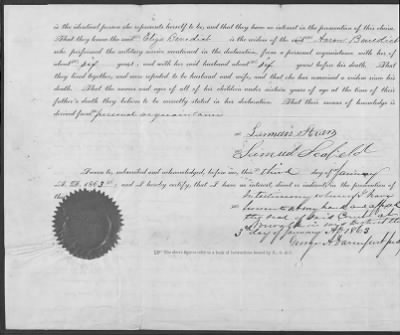 is the identical person she represents herself to be, and that they have no interest in the prosecution of this claim.
That they know the said Eliza Benedict is the widow of the said Aaron Benedict
who performed the military service mentioned in the declaration, from a personal acquaintance with her of
about six years, and with said husband about six years before his death. That
they lived together, and were reputed to be husband and wife, and that she has remained a widow since his
death. That the names and ages of all of his children under sixteen years of age at the time of their
father's death they believe to be correctly stated in her declaration. That their means of knowledge is
derived from personal acquaintance
Seofield
Sworn to, subscribed and acknowledged, before me, this third day of January
A. D. 1863; and I hereby certify, that I have no interest, direct or indirect, in the prosecution of
In testimony whereof I have
hereunto set my hand and affixed
the seal of said Court at
in said District this
3rd day of January AD 1863